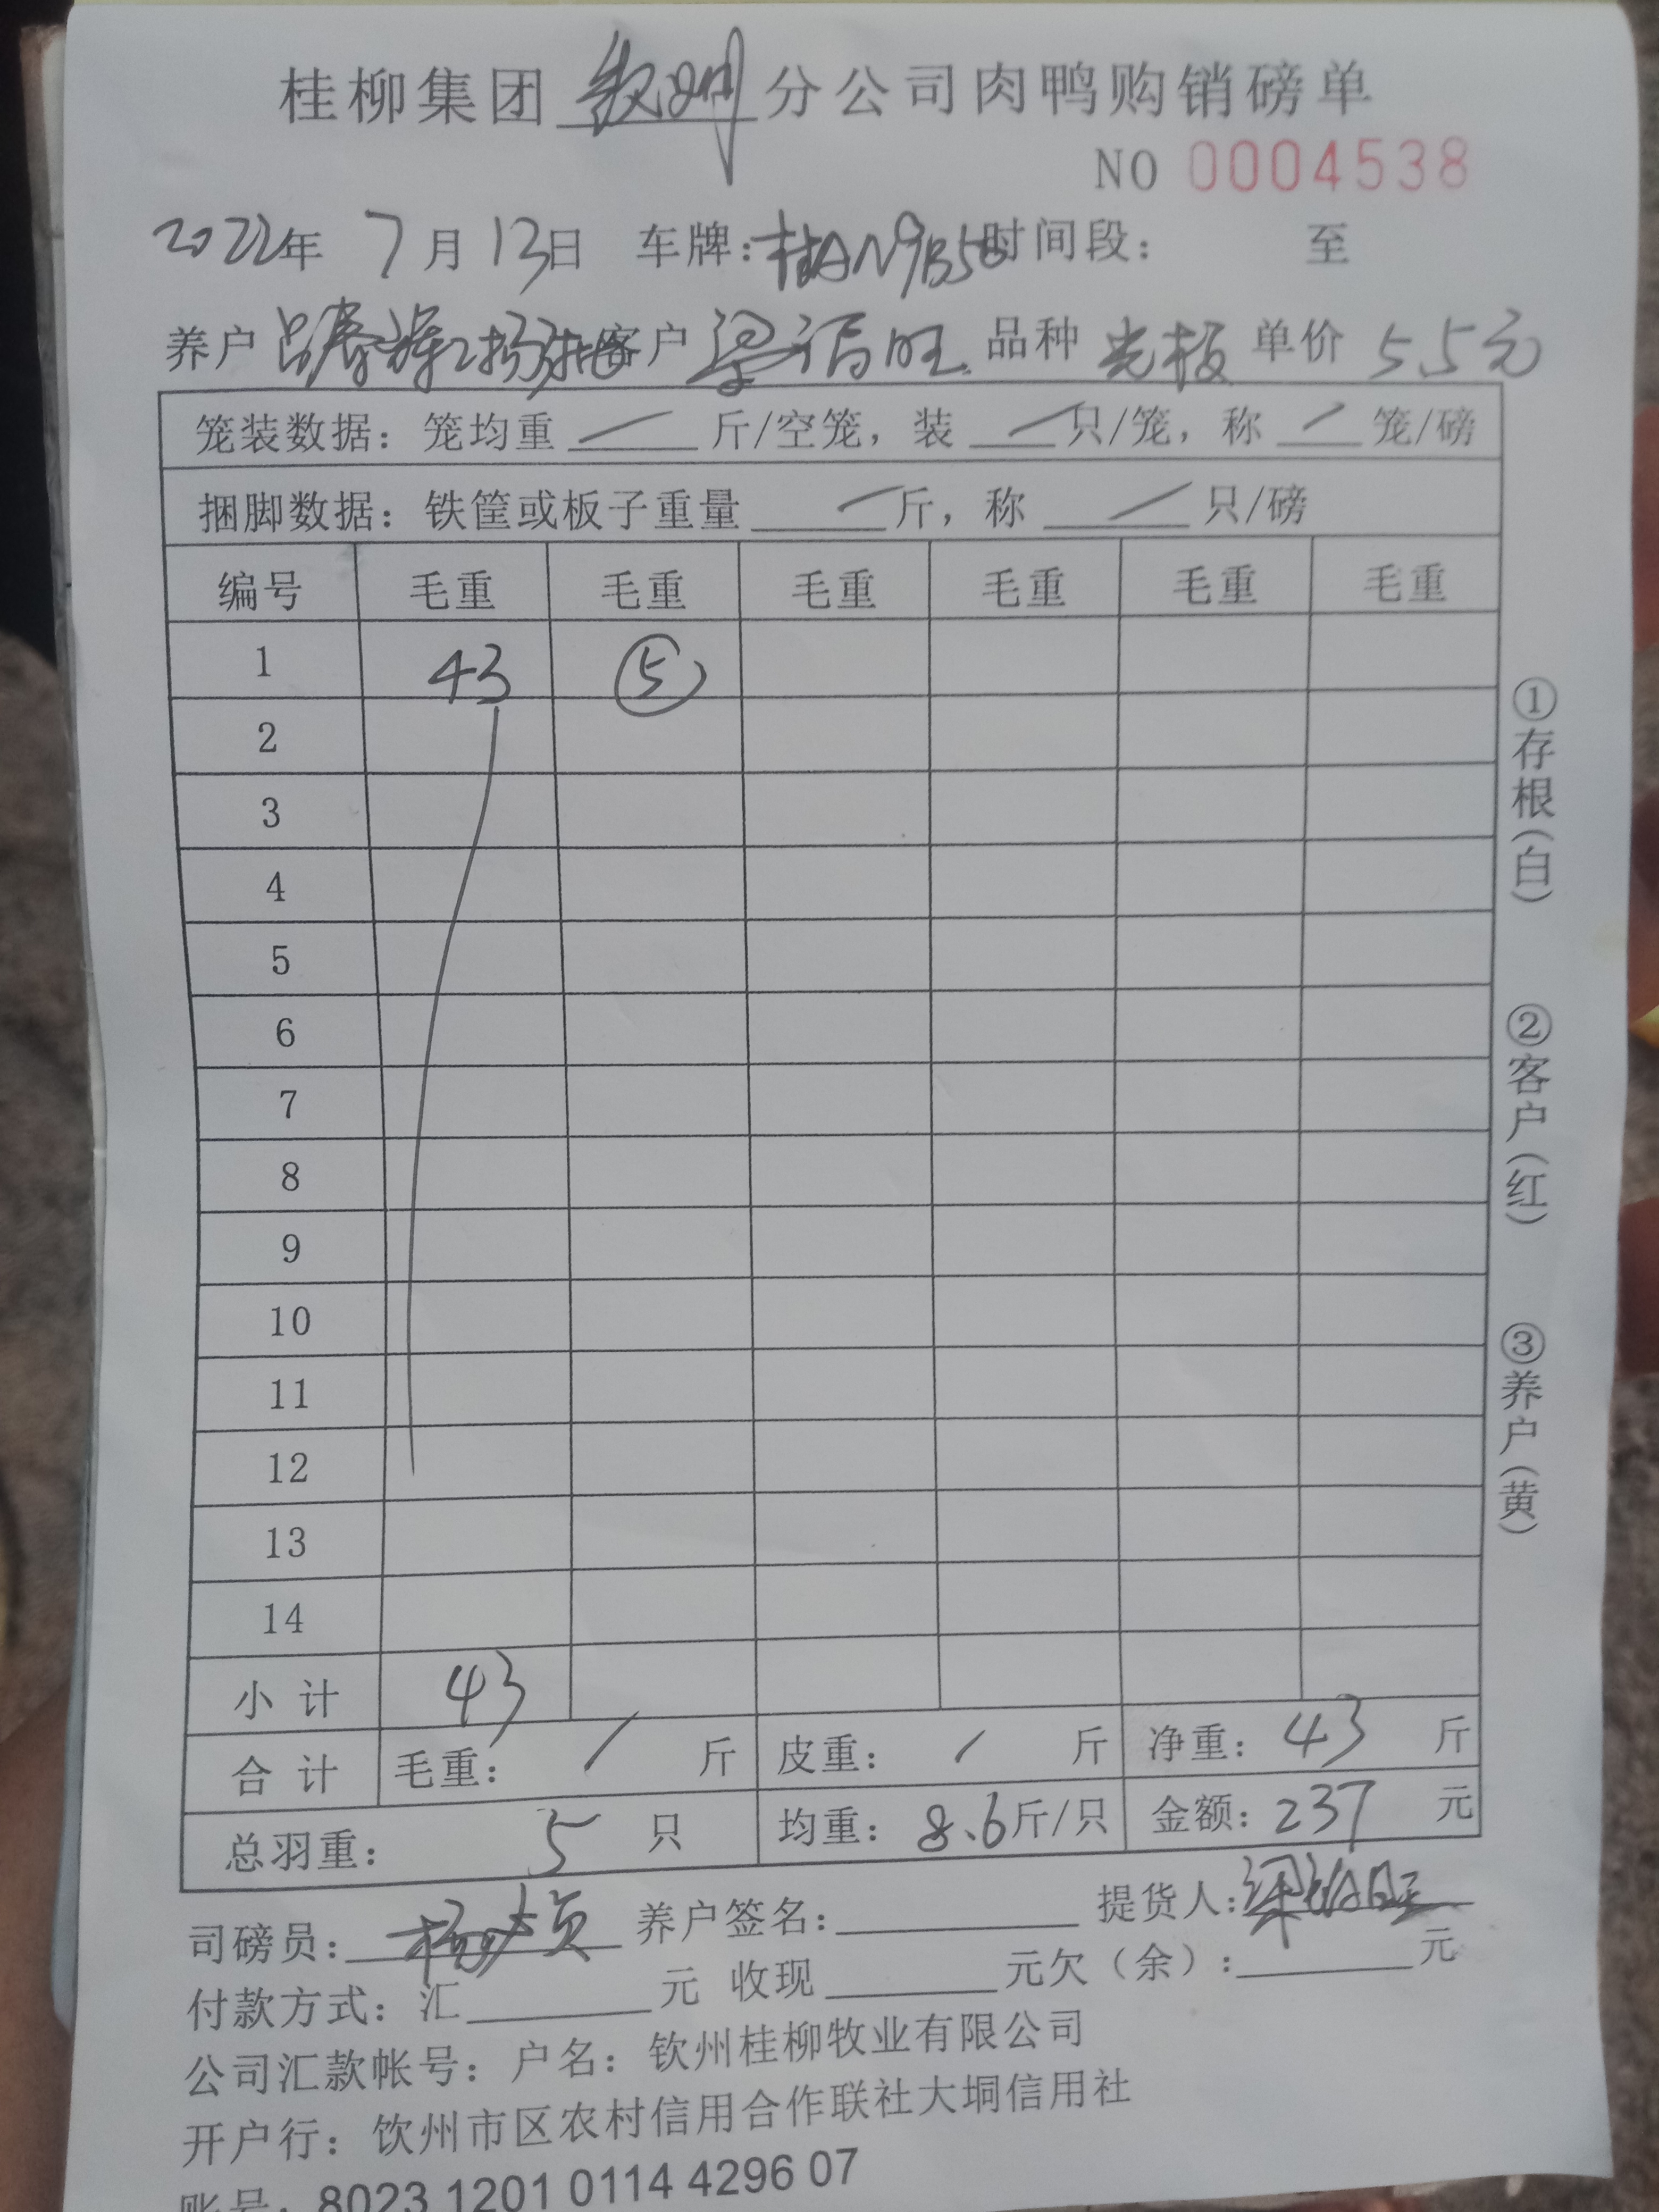 桂柳集团 钦州 分公司肉鸭购销磅单
NO 0004538
2022年 7月13日 车牌：桂AN9B58 时间段： 至
养户 吕春 客户 梁福旺 品种 光板 单价 5.5元
笼装数据：笼均重 / 斤/空笼，装 / 只/笼，称 / 笼/磅
捆脚数据：铁筐或板子重量 / 斤，称 / 只/磅
编号 毛重 毛重 毛重 毛重 毛重 毛重
1 43 ⑤
2
3
4
5
6
7
8
9
10
11
12
13
14
小计 43
合计 毛重： / 斤 皮重： / 斤 净重：43 斤
总羽重： 5 只 均重：8.6斤/只 金额：237 元
司磅员： 养户签名： 提货人：梁福旺
付款方式：汇 元 收现 元欠（余）： 元
公司汇款帐号：户名：钦州桂柳牧业有限公司
开户行：钦州市区农村信用合作联社大垌信用社
账号：8023 1201 0114 4296 07
①存根（白）
②客户（红）
③养户（黄）